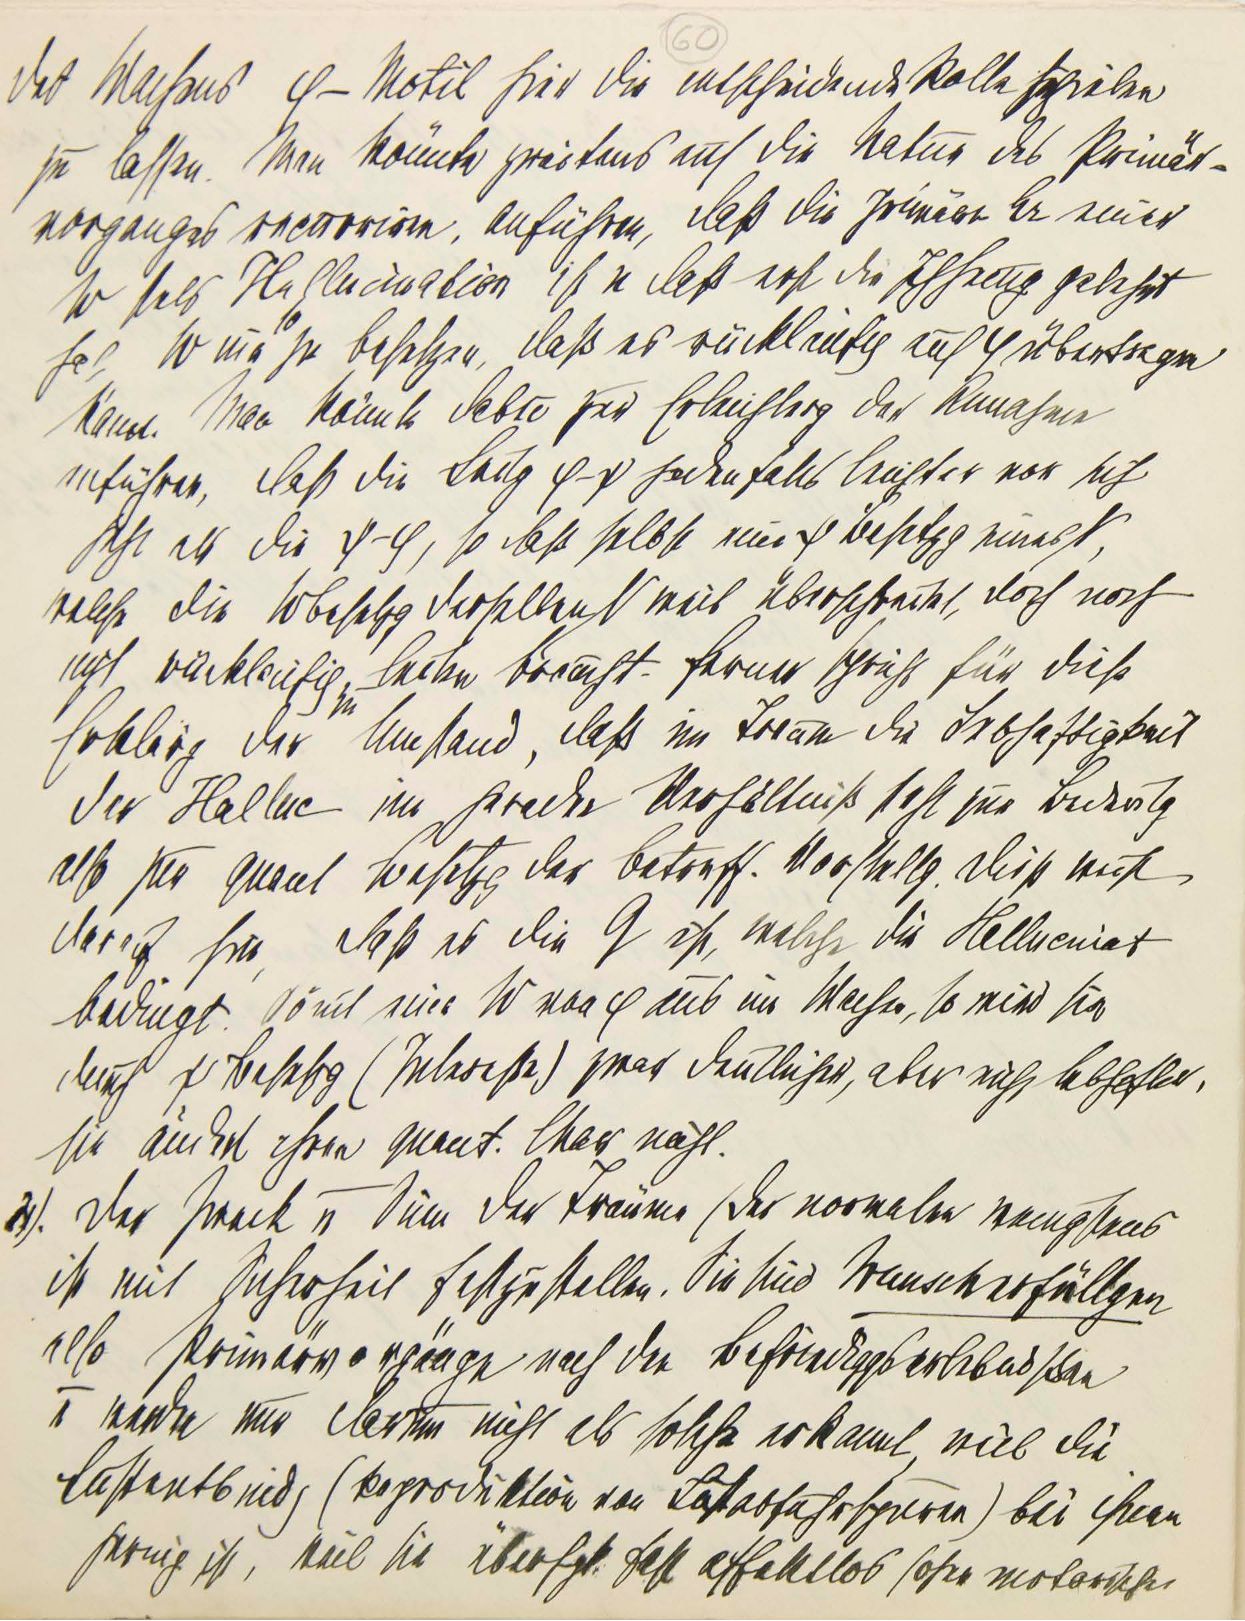 60
des Wachens φ – Motil hier die entscheidende Rolle spielen
zu lassen. Man könnte zweitens auf die Natur des Primär-
vorganges recurriren, anführen, daß die primäre Er einer
W stets Hallucination ist u daß erst die Ichhemg gelehrt
hat, W nie so zu besetzen, daß es rückläufig auf φ übertragen
kann. Man könnte dabei zur Erleichterg der Annahme
anführen, daß die Leitg φ–ψ jedenfalls leichter vor sich
geht als die ψ–φ, so daß selbst eine ψ Besetzg eines N,
welche die Wbesetzg desselben N weit überschreitet, doch noch
nicht rückläufig zu leiten braucht. Ferner spricht für diese
Erklärg der Umstand, daß im Traum die Lebhaftigkeit
der Halluc im geraden Verhältniß steht zur Bedeutg
also zur quant Besetzg der betreff. Vorstellg. Dieß weist
darauf hin, daß es die Q ist, welche die Hallucinat
bedingt. Kömt eine W von φ aus im Wachen, so wird sie
durch ψ Besetzg (Interesse) zwar deutlicher, aber nicht lebhafter,
sie ändert ihren quant. Char nicht.
Der Zweck u Sinn der Träume (der normalen wenigstens
ist mit Sicherheit festzustellen. Sie sind Wunscherfüllgen
also Primärvorgänge nach den Befriediggserlebnissen
u werden nur darum nicht als solche erkannt, weil die
Lustentbindg (Reproduktion von Lustabfuhrspuren) bei ihnen
gering ist, weil sie überhpt fast affektlos (ohne motorische